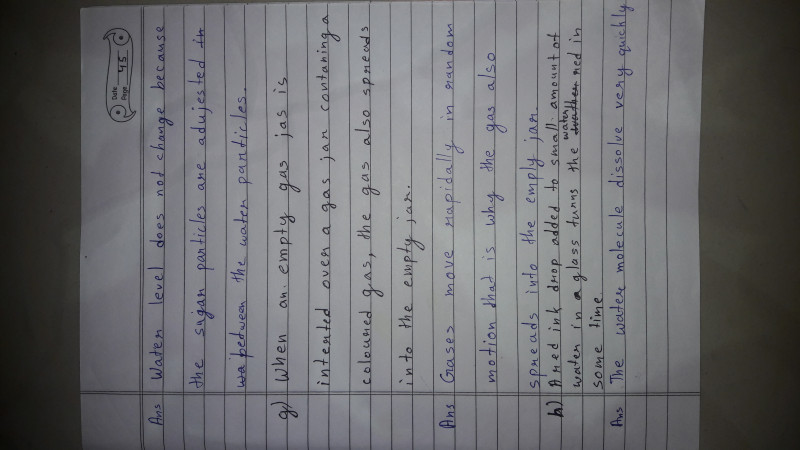 Date
Page 45
Ans Water level does not change because
the sugar particles are adujested in
wa between the water particles.
g) When an empty gas jas is
interted over a gas jar contaning a
coloured gas, the gas also spreads
into the empty jar.
Ans Gases move rapidally in random
motion that is why the gas also
spreads into the emply jar.
h) A red ink drop added to small amount of
water in a glass turns the water red in
some time.
Ans The water molecule dissolve very quickly